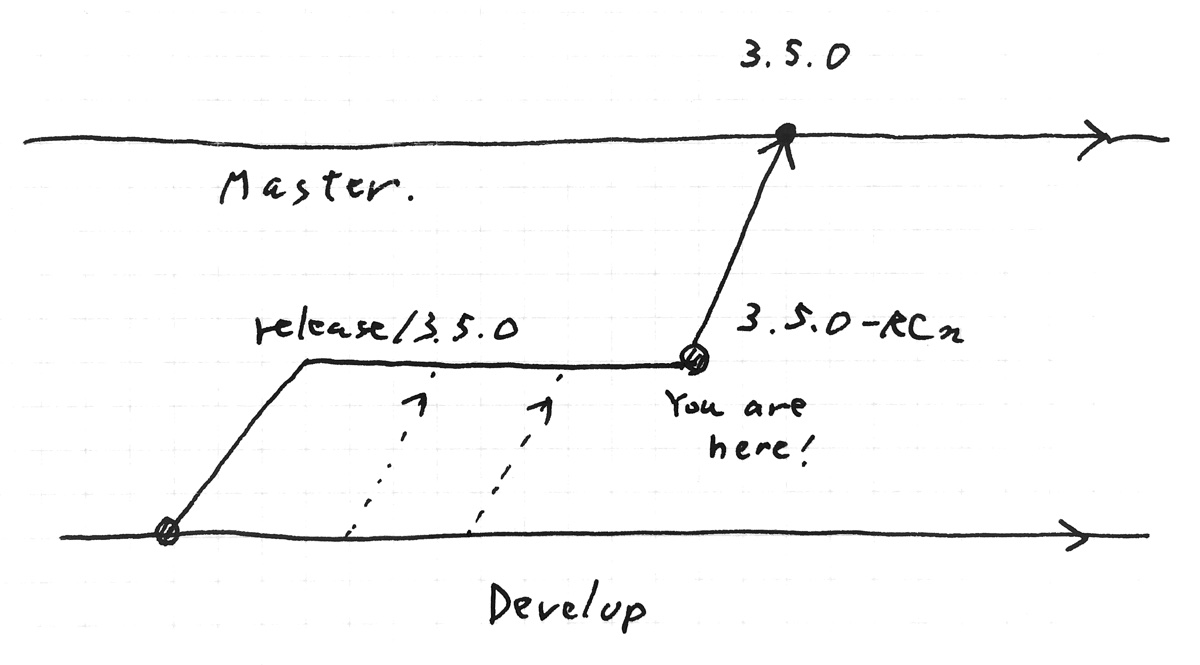 3.5.0
Master.
release/3.5.0
3.5.0-RCn
You are
here!
Develup